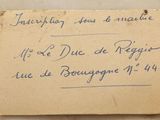 Inscription sous le marbre
Mr Le Duc de Réggio
rue de Bourgogne No 44